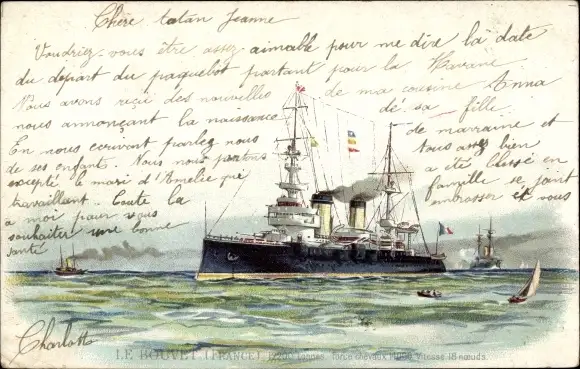 Chère tatan Jeanne
Voudriez-vous être assez aimable pour me dire la date
du depart du paquebot partant pour la Havane.
Nous avons reçu des nouvelles de ma cousine Anna
nous annonçant la naissance de sa fille.
En nous ecrivant parlez nous de marraine et
de ses enfants. Nous nous portons tous assez bien
excepté le mari d'Amelie qui a été blessé en
travaillant. Toute la famille se joint
a moi pour vous embrasser et vous
souhaiter une bonne
santé
Charlotte
LE BOUVET (FRANCE) tonnes. Force chevaux Vitesse 18 nœuds.